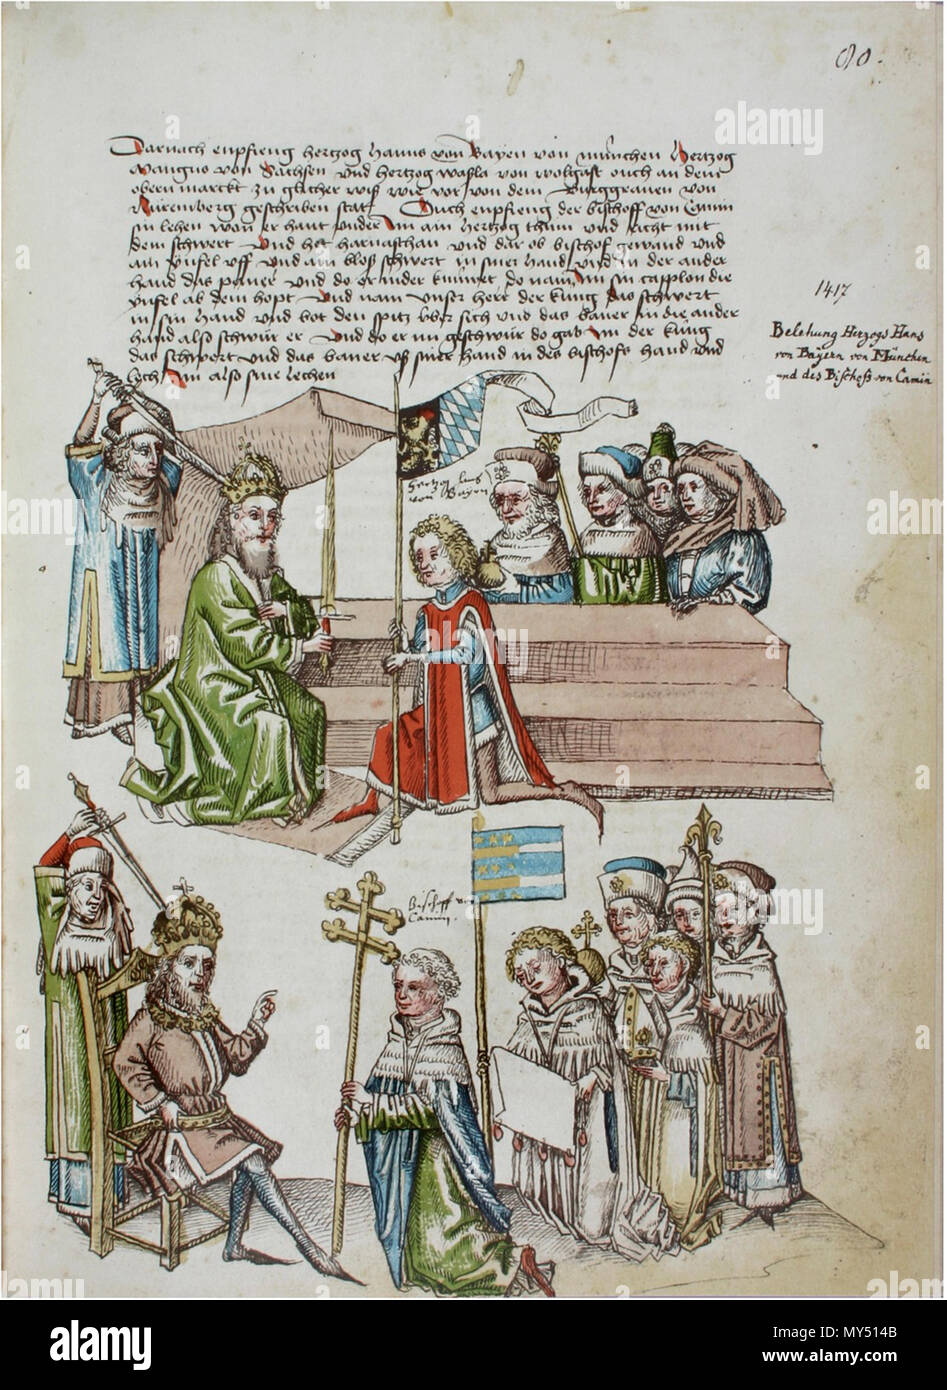 80.
Darnach enpfieng hertzog hanns von Bayen von münchen Hertzog
Mangnus von Sachsen Und hertzog waßla von wolgast ouch an dem
obern marckt zu glicher wiß wie vor von dem Burggrauen von
Nüremberg geschriben stat Ouch enpfieng der bischoff von Camin
sin lehen won er haut under Im ain hertzog thum und richt mit
dem schwert Und het harnasch an und dar ob bischof gewand und
ain ynfel uff und ain bloß schwert in siner hand und in der ander
hand das paner Und do er nider knüwet do nam Im sin capplon die
ynfel ab dem hopt Und nam unser herr der küng das schwert
in sin hand Und bot den spitz über sich und das baner in die ander
hand also schwür er Und do er nu geschwür do gab Im der küng
das schwert und das baner uß siner hand in des bischofs hand und
lech Im also sine lechen
1417
Belehung Herzogs Hans
von Bayern von München
und des Bischofs von Camin
hertzog hans
von Bayen
Bischoff von
Camin.
alamy
Image ID: MY514B
www.alamy.com